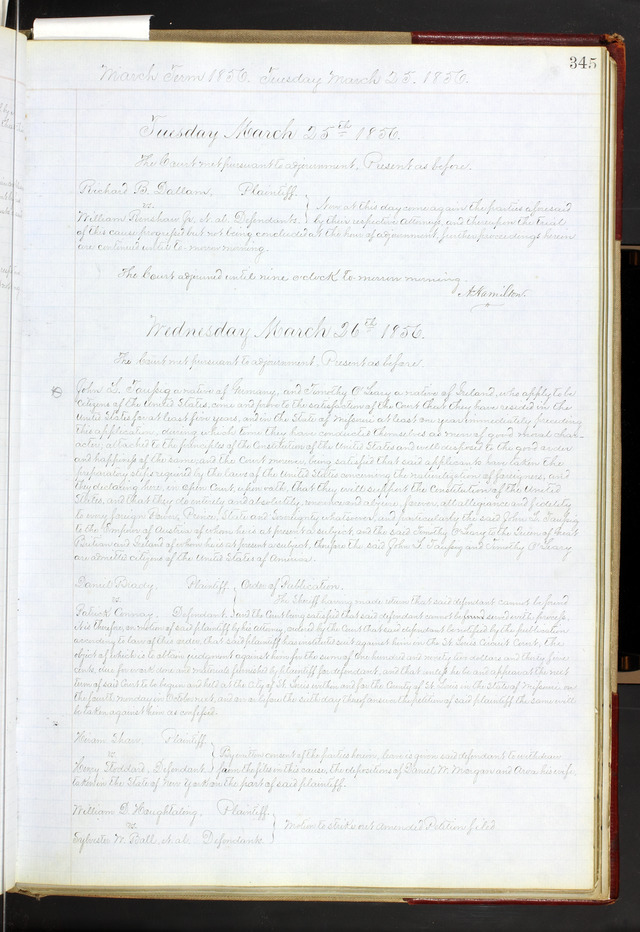 345
March Term 1856. Tuesday March 25. 1856.
Tuesday March 25th 1856.
The Court met pursuant to adjournment, Present as before.
Richard B. Dallam, Plaintiff
vs.
William Renshaw Jr. et al. Defendants.
Now at this day come again the parties aforesaid
by their respective attorneys and thereupon the trial
of this cause progressed but not being concluded at the hour of adjournment further proceedings herein
are continued until to-morrow morning.
The Court adjourned until nine o'clock to-morrow morning.
A. Hamilton.
Wednesday March 26th 1856.
The Court met pursuant to adjournment, Present as before
John L. Taussig a native of Germany, and Timothy O'Leary a native of Ireland, who apply to be
citizens of the United States, come and prove to the satisfaction of the Court that they have resided in the
United States for at least five years, and in the State of Missouri at least one year immediately preceding
this application, during which time they have conducted themselves as men of good moral char-
acter, attached to the principles of the Constitution of the United States and well disposed to the good order
and happiness of the same, and the Court moreover being satisfied that said applicants have taken the
preparatory steps required by the laws of the United States concerning the naturalization of foreigners, and
they declaring here, in open Court, upon oath, that they will support the Constitution of the United
States, and that they do entirely and absolutely renounce and abjure forever, all allegiance and fidelity
to every foreign Power, Prince, State and Sovereignty whatsoever, and particularly the said John L. Taussig
to the Emperor of Austria of whom he is at present a subject, and the said Timothy O'Leary to the Queen of Great
Britain and Ireland of whom he is at present a subject, therefore the said John L. Taussig and Timothy O'Leary
are admitted citizens of the United States of America.
Daniel Brady, Plaintiff
vs
Patrick Conway, Defendant.
Order of Publication.
The Sheriff having made return that said defendant cannot be found
and the Court being satisfied that said defendant cannot be served with process,
it is therefore, on motion of said plaintiff by his attorney, ordered by the Court that said defendant be notified by the publication
according to law of this order, that said plaintiff has instituted suit against him in the St. Louis Circuit Court, the
object of which is to obtain judgment against him for the sum of one hundred and ninety two dollars and thirty five
cents, due for work done and materials furnished by plaintiff for defendant, and that unless he be and appear at the next
term of said Court to be begun and held at the City of St. Louis within and for the County of St. Louis in the State of Missouri on
the fourth monday in October next, and on or before the sixth day thereof answer the petition of said plaintiff the same will
be taken against him as confessed.
Hiram Shaw, Plaintiff
vs
Henry Stoddard, Defendant
By mutual consent of the parties herein, leave is given said defendant to withdraw
from the files in this cause, the depositions of Daniel W. Morgan and his wife,
taken in the State of New York on the part of said plaintiff.
William D. Houghtaling, Plaintiff
vs.
Sylvester W. Ball, et al. Defendants
Motion to strike out Amended Petition filed